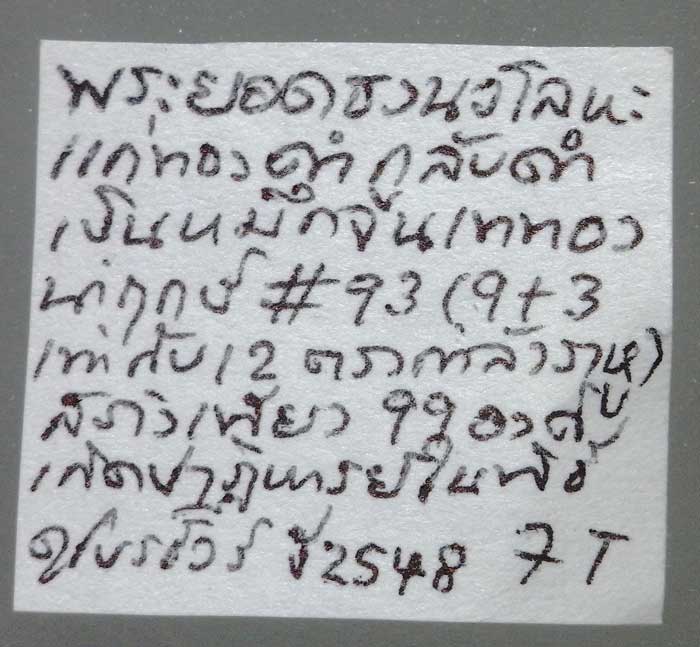 พระยอดธงนวโลหะ
แก่ทองคำ กลับดำ
เป็นหมึกจีนเททอง
นำฤกษ์ #93 (9+3
เท่ากับ12 ตรงกำลังราหู)
สร้างเพียง 99 องค์
เกิดปาฏิหารย์ในพิธี
ปี2548 7 T